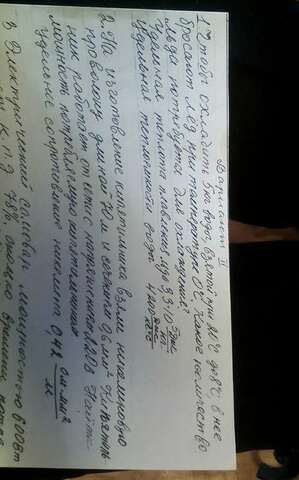 Вариант II
1. Чтобы охладить 5 кг воды, взятой при 20°С до 8°С в нее
бросают лёд при температуре 0°С. Какое количество
льда потребуется для охлаждения?
Удельная теплота плавления льда 3,3·10 Дж/кг
Удельная теплоемкость воды 4200 Дж/кг°С
2. На изготовление кипятильника взяли никелиновую
проволоку длиной 70 м и сечением мм² Кипятиль-
ник работает от сети с напряжением 220 В. Найти
мощность потребляемую кипятильником
Удельное сопротивление никелина 0,42 Ом·мм²/м
3. Электрический самовар мощностью 600 Вт
К.П.Д. 75%, сколько времени